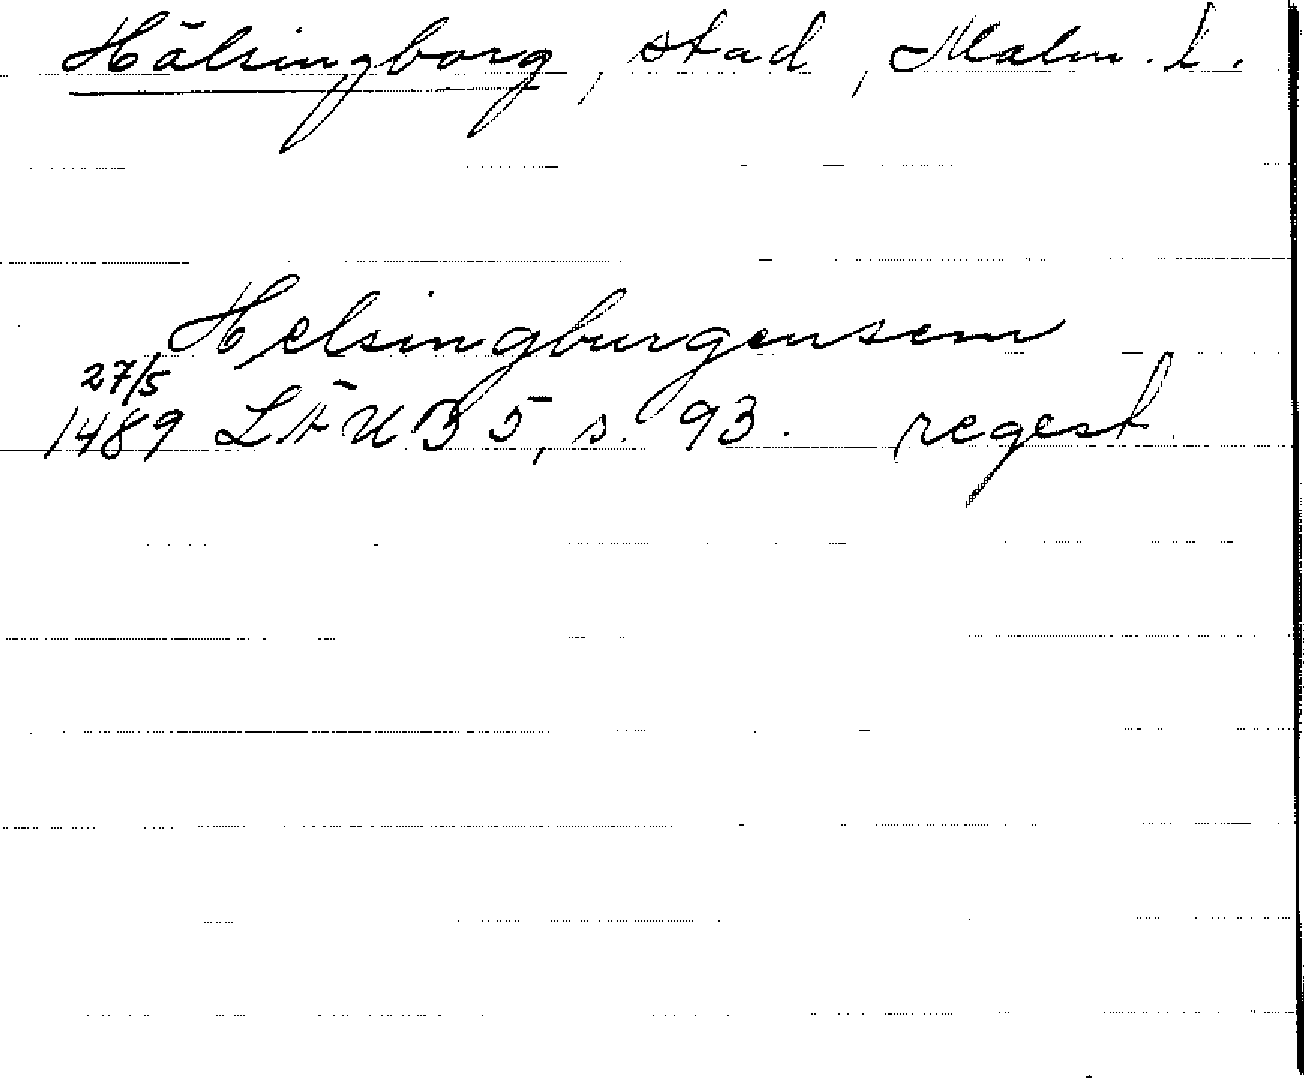 Hälsingborg, stad, Malm. L.
Helsingburgensem
27/5
1489 LÄUB 5, s. 93. regest